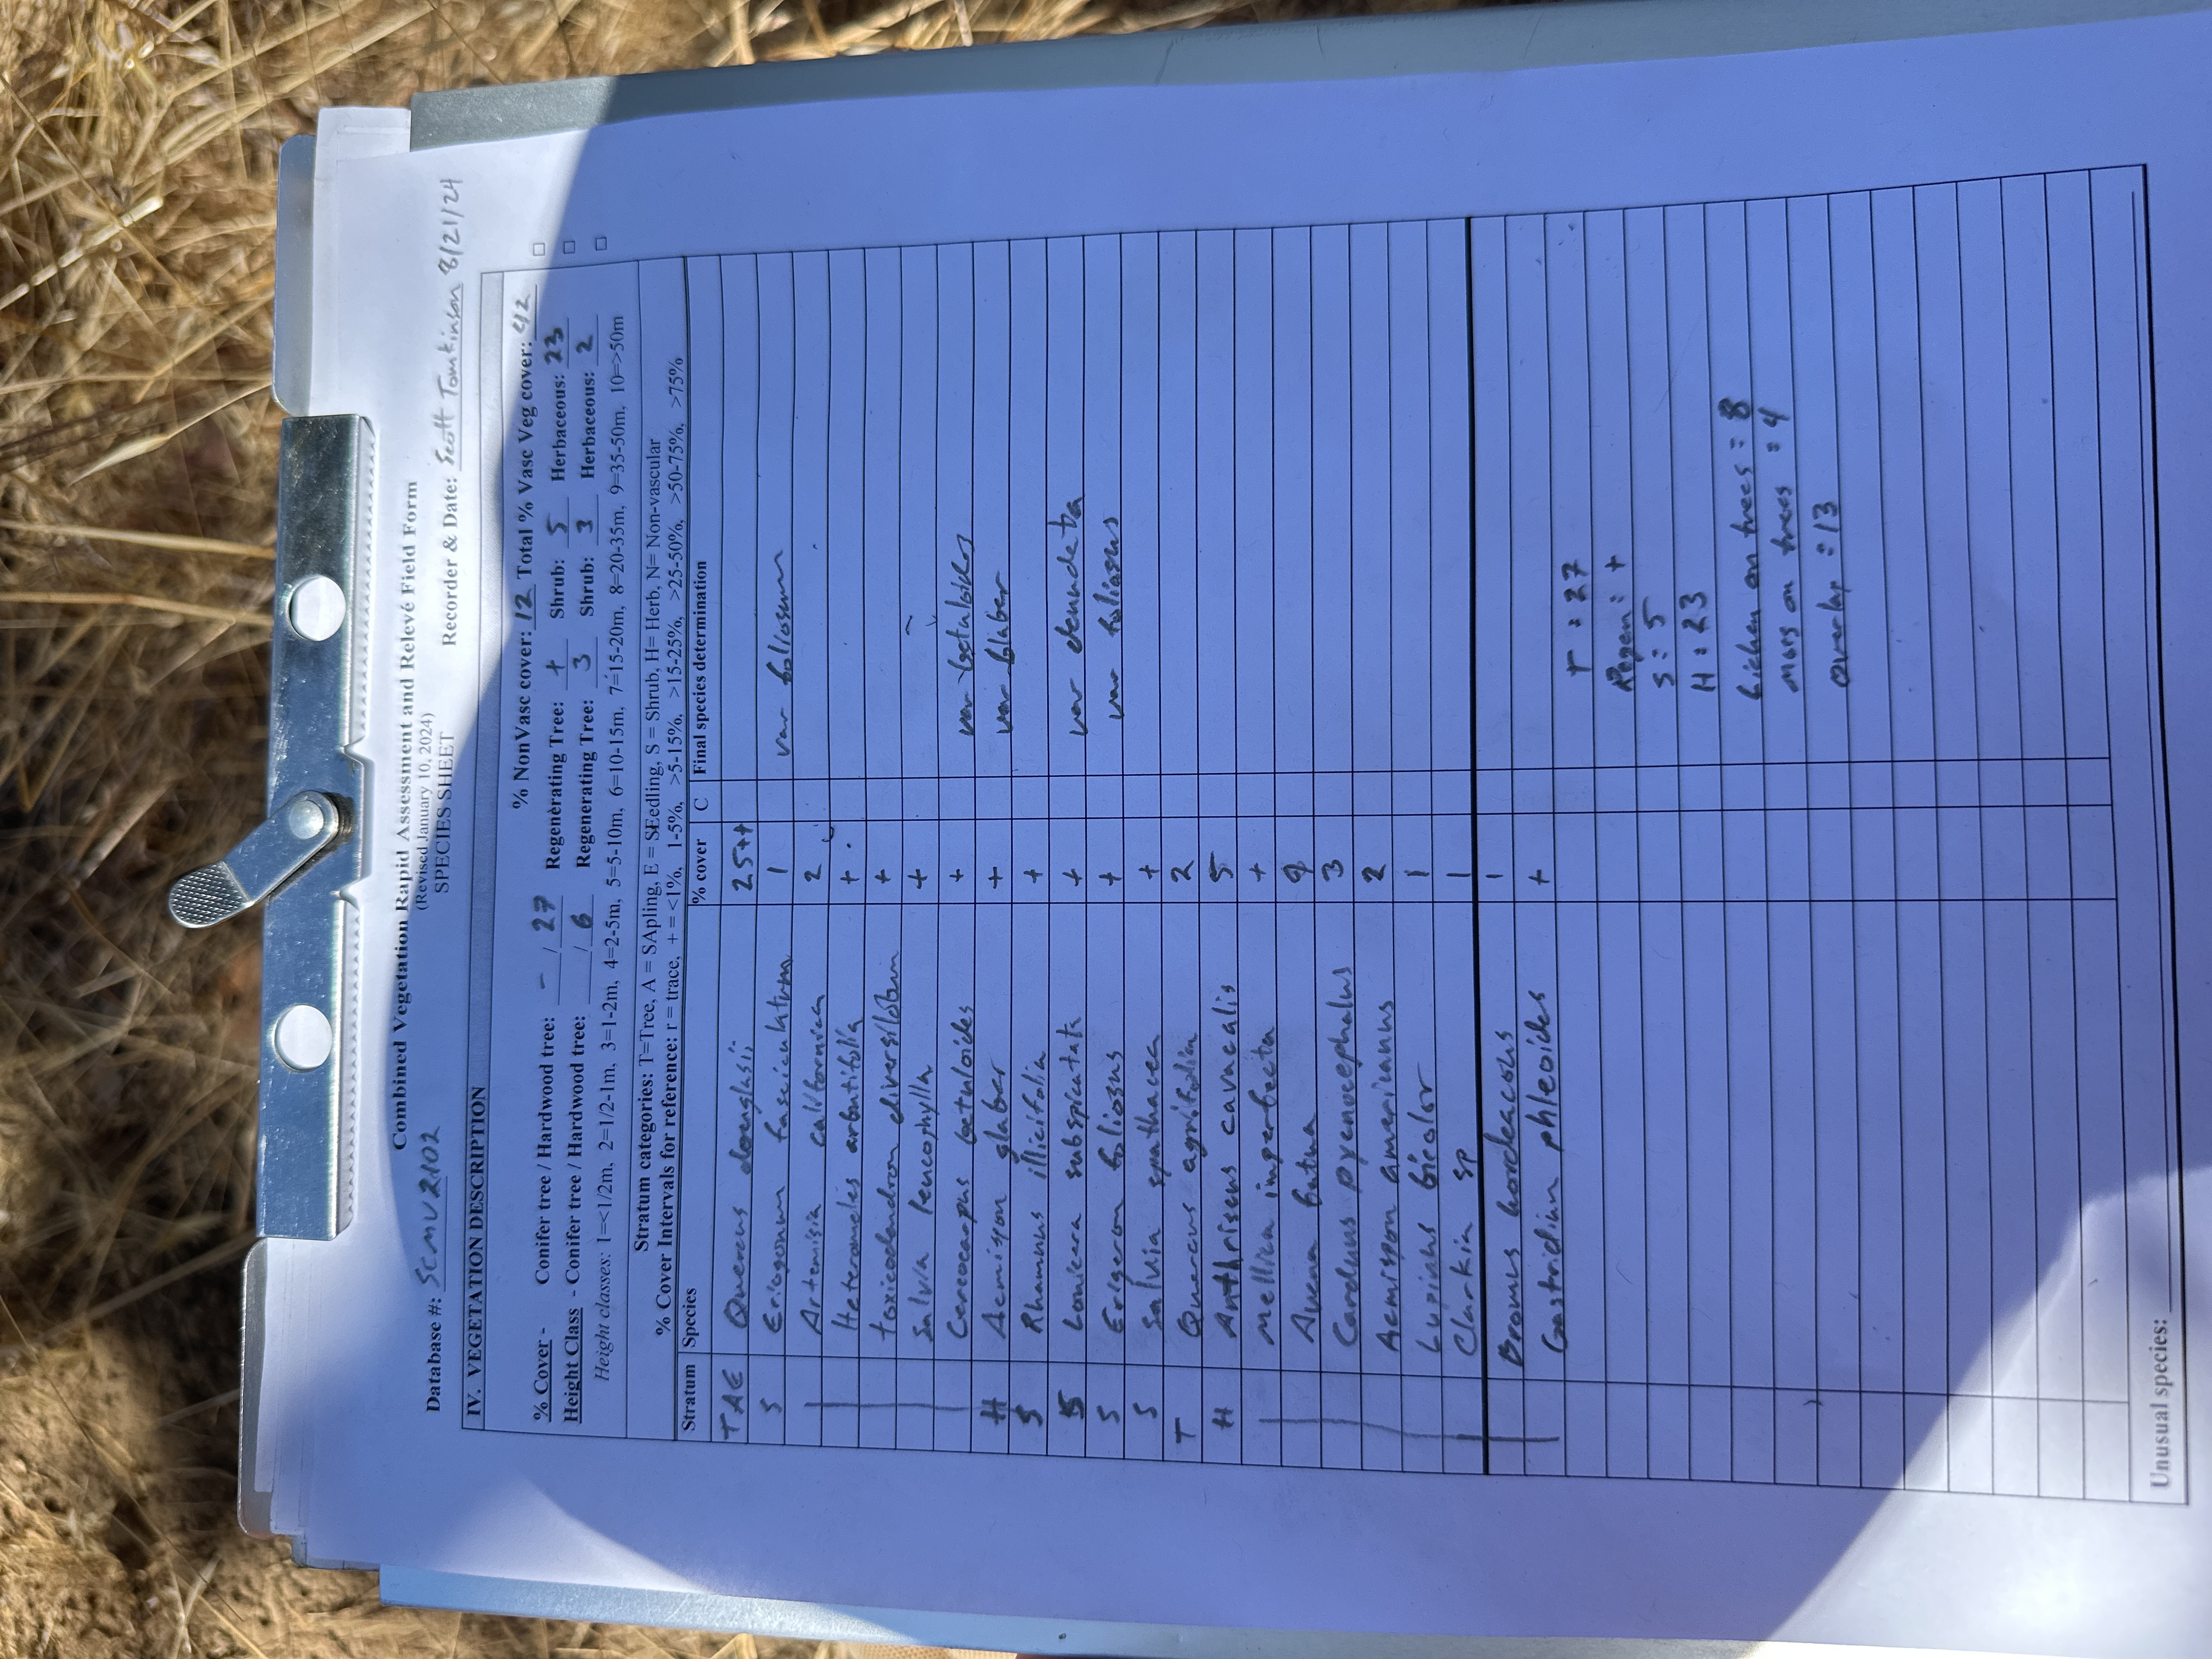 Combined Vegetation Rapid Assessment and Relevé Field Form
(Revised January 10, 2024)
SPECIES SHEET
Database #: SCMV2102 Recorder & Date: Scott Tomkinson 8/21/24
IV. VEGETATION DESCRIPTION
% NonVasc cover: 12 Total % Vasc Veg cover: 42
% Cover - Conifer tree / Hardwood tree: - / 27 Regenerating Tree: + Shrub: 5 Herbaceous: 23
Height Class - Conifer tree / Hardwood tree: / 6 Regenerating Tree: 3 Shrub: 3 Herbaceous: 2
Height classes: 1=<1/2m, 2=1/2-1m, 3=1-2m, 4=2-5m, 5=5-10m, 6=10-15m, 7=15-20m, 8=20-35m, 9=35-50m, 10=>50m
Stratum categories: T=Tree, A = SApling, E = SEedling, S = Shrub, H= Herb, N= Non-vascular
% Cover Intervals for reference: r = trace, + = <1%, 1-5%, >5-15%, >15-25%, >25-50%, >50-75%, >75%
Stratum Species % cover C Final species determination
TAE Quercus douglasii 25++
S Eriogonum fasciculatum 1 var foliosum
Artemisia californica 2
Heteromeles arbutifolia +
toxicodendron diversilobum +
Salvia leucophylla +
Cercocarpus betuloides + var betuloides
H Acmispon glaber + var glaber
S Rhamnus illicifolia +
S Lonicera subspicata + var denudata
S Erigeron foliosus + var foliosus
S Salvia spathacea +
T Quercus agrifolia 2
H Anthriscus cavacalis 5
Mellica imperfecta +
Avena fatua 9
Carduus pycnocephalus 3
Acmispon americanus 2
Lupinus bicolor 1
Clarkia sp 1
Bromus hordeaceus 1
Gastridium phleoides +
T = 27
Regen: +
S = 5
H = 23
Lichen on trees = 8
moss on trees = 4
overlap = 13
Unusual species: